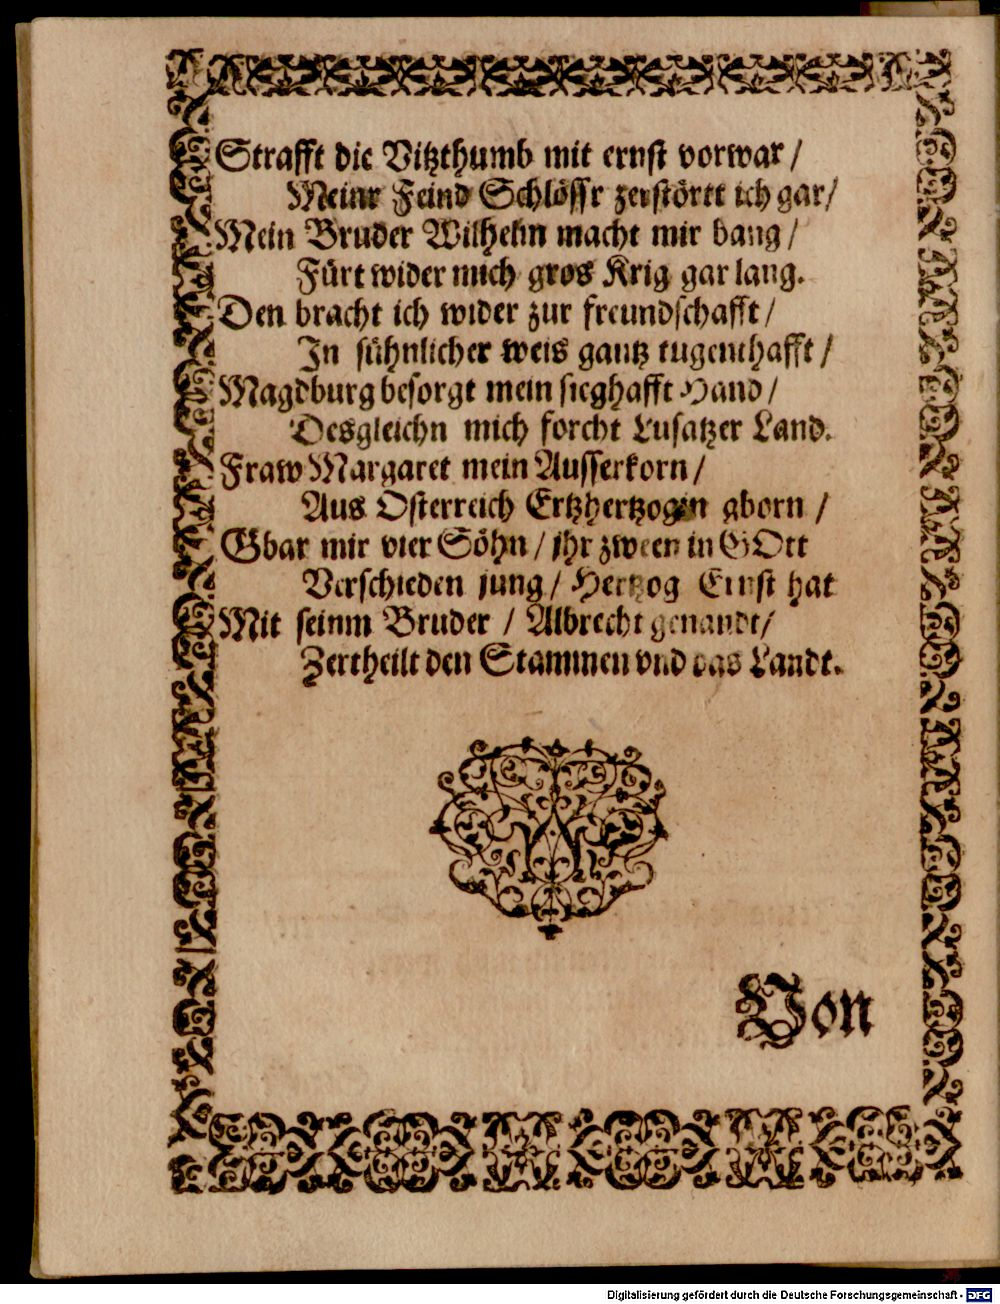 Strafft die Vitzthumb mit ernst vorwar /
Meinr Feind Schlössr zerstörtt ich gar /
Mein Bruder Wilhelm macht mir bang /
Fürt wider mich gros Krig gar lang.
Den bracht ich wider zur freundschafft /
In sühnlicher weis gantz tugenthafft /
Magdburg besorgt mein sieghafft Hand /
Desgleichn mich forcht Lusatzer Land.
Fraw Margaret mein Ausserkorn /
Aus Osterreich Ertzhertzogin gborn /
Gbar mir vier Söhn / ihr zween in GOtt
Verschieden jung / Hertzog Ernst hat
Mit seinm Bruder / Albrecht genandt /
Zertheilt den Stammen vnd das Landt.
Von
Digitalisierung gefördert durch die Deutsche Forschungsgemeinschaft - DFG